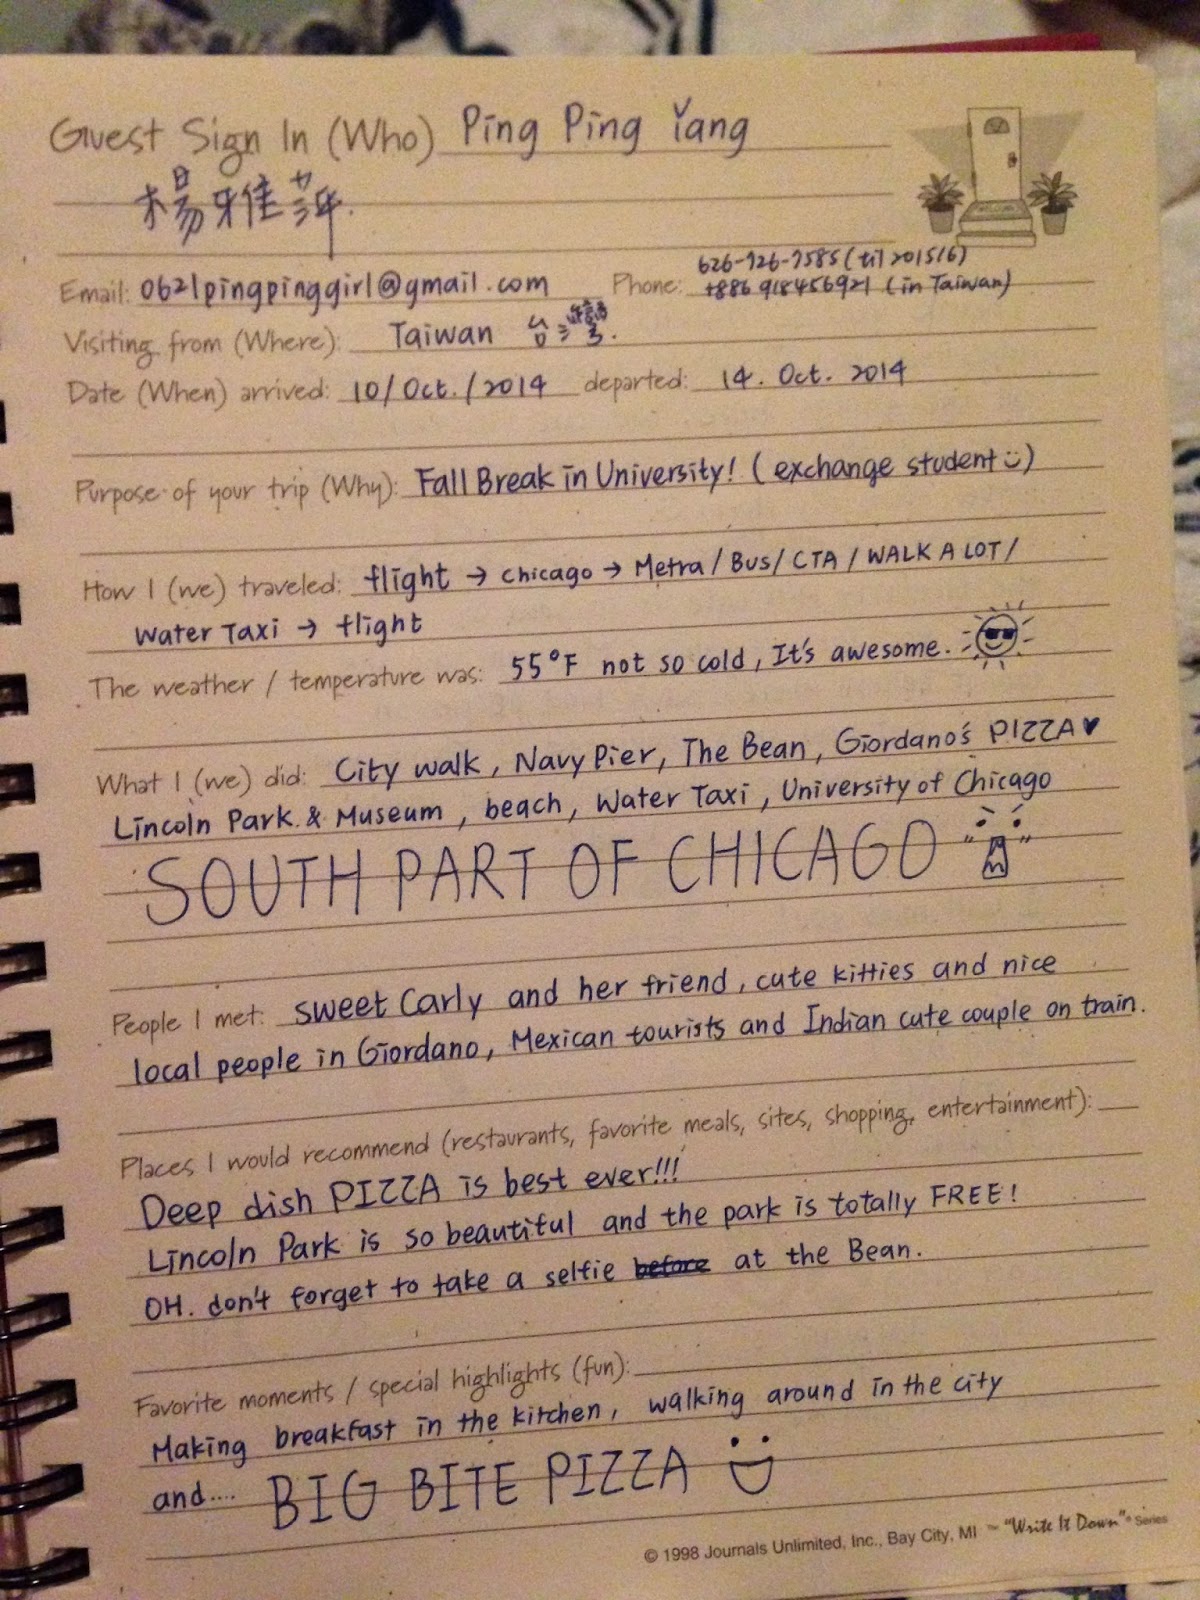 Guest Sign In (Who) Ping Ping Yang
楊雅萍.
626-726-7585 (til 2015/6)
Email: 0621pingpinggirl@gmail.com Phone: +886 918456921 (in Taiwan)
Visiting from (Where): Taiwan 台灣.
Date (When) arrived: 10/Oct./2014 departed: 14. Oct. 2014
Purpose of your trip (Why): Fall Break in University! (exchange student)
How I (we) traveled: flight → chicago → Metra / Bus / CTA / WALK A LOT /
Water Taxi → flight
The weather / temperature was: 55°F not so cold, It's awesome.
What I (we) did: City walk, Navy Pier, The Bean, Giordano's PIZZA ♥
Lincoln Park & Museum, beach, Water Taxi, University of Chicago
SOUTH PART OF CHICAGO
People I met: sweet Carly and her friend, cute kitties and nice
local people in Giordano, Mexican tourists and Indian cute couple on train.
Places I would recommend (restaurants, favorite meals, sites, shopping, entertainment):
Deep dish PIZZA is best ever!!!
Lincoln Park is so beautiful and the park is totally FREE!
OH. don't forget to take a selfie before at the Bean.
Favorite moments / special highlights (fun):
Making breakfast in the kitchen, walking around in the city
and.... BIG BITE PIZZA
© 1998 Journals Unlimited, Inc., Bay City, MI ~ "Write It Down"® Series